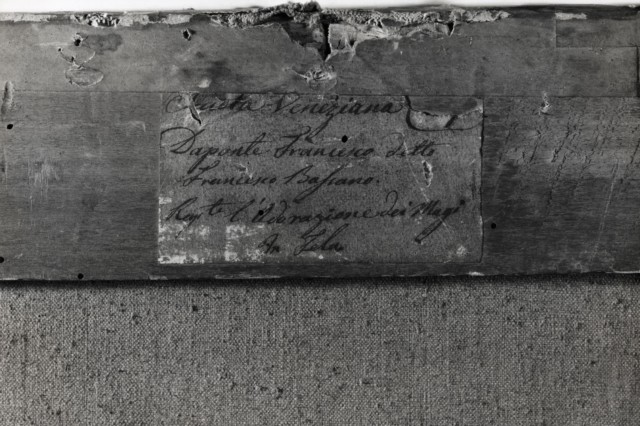 Scuola Veneziana
Daponte Francesco detto
Francesco Bassano.
Rapte. l'Adorazione dei Magi
In Tela